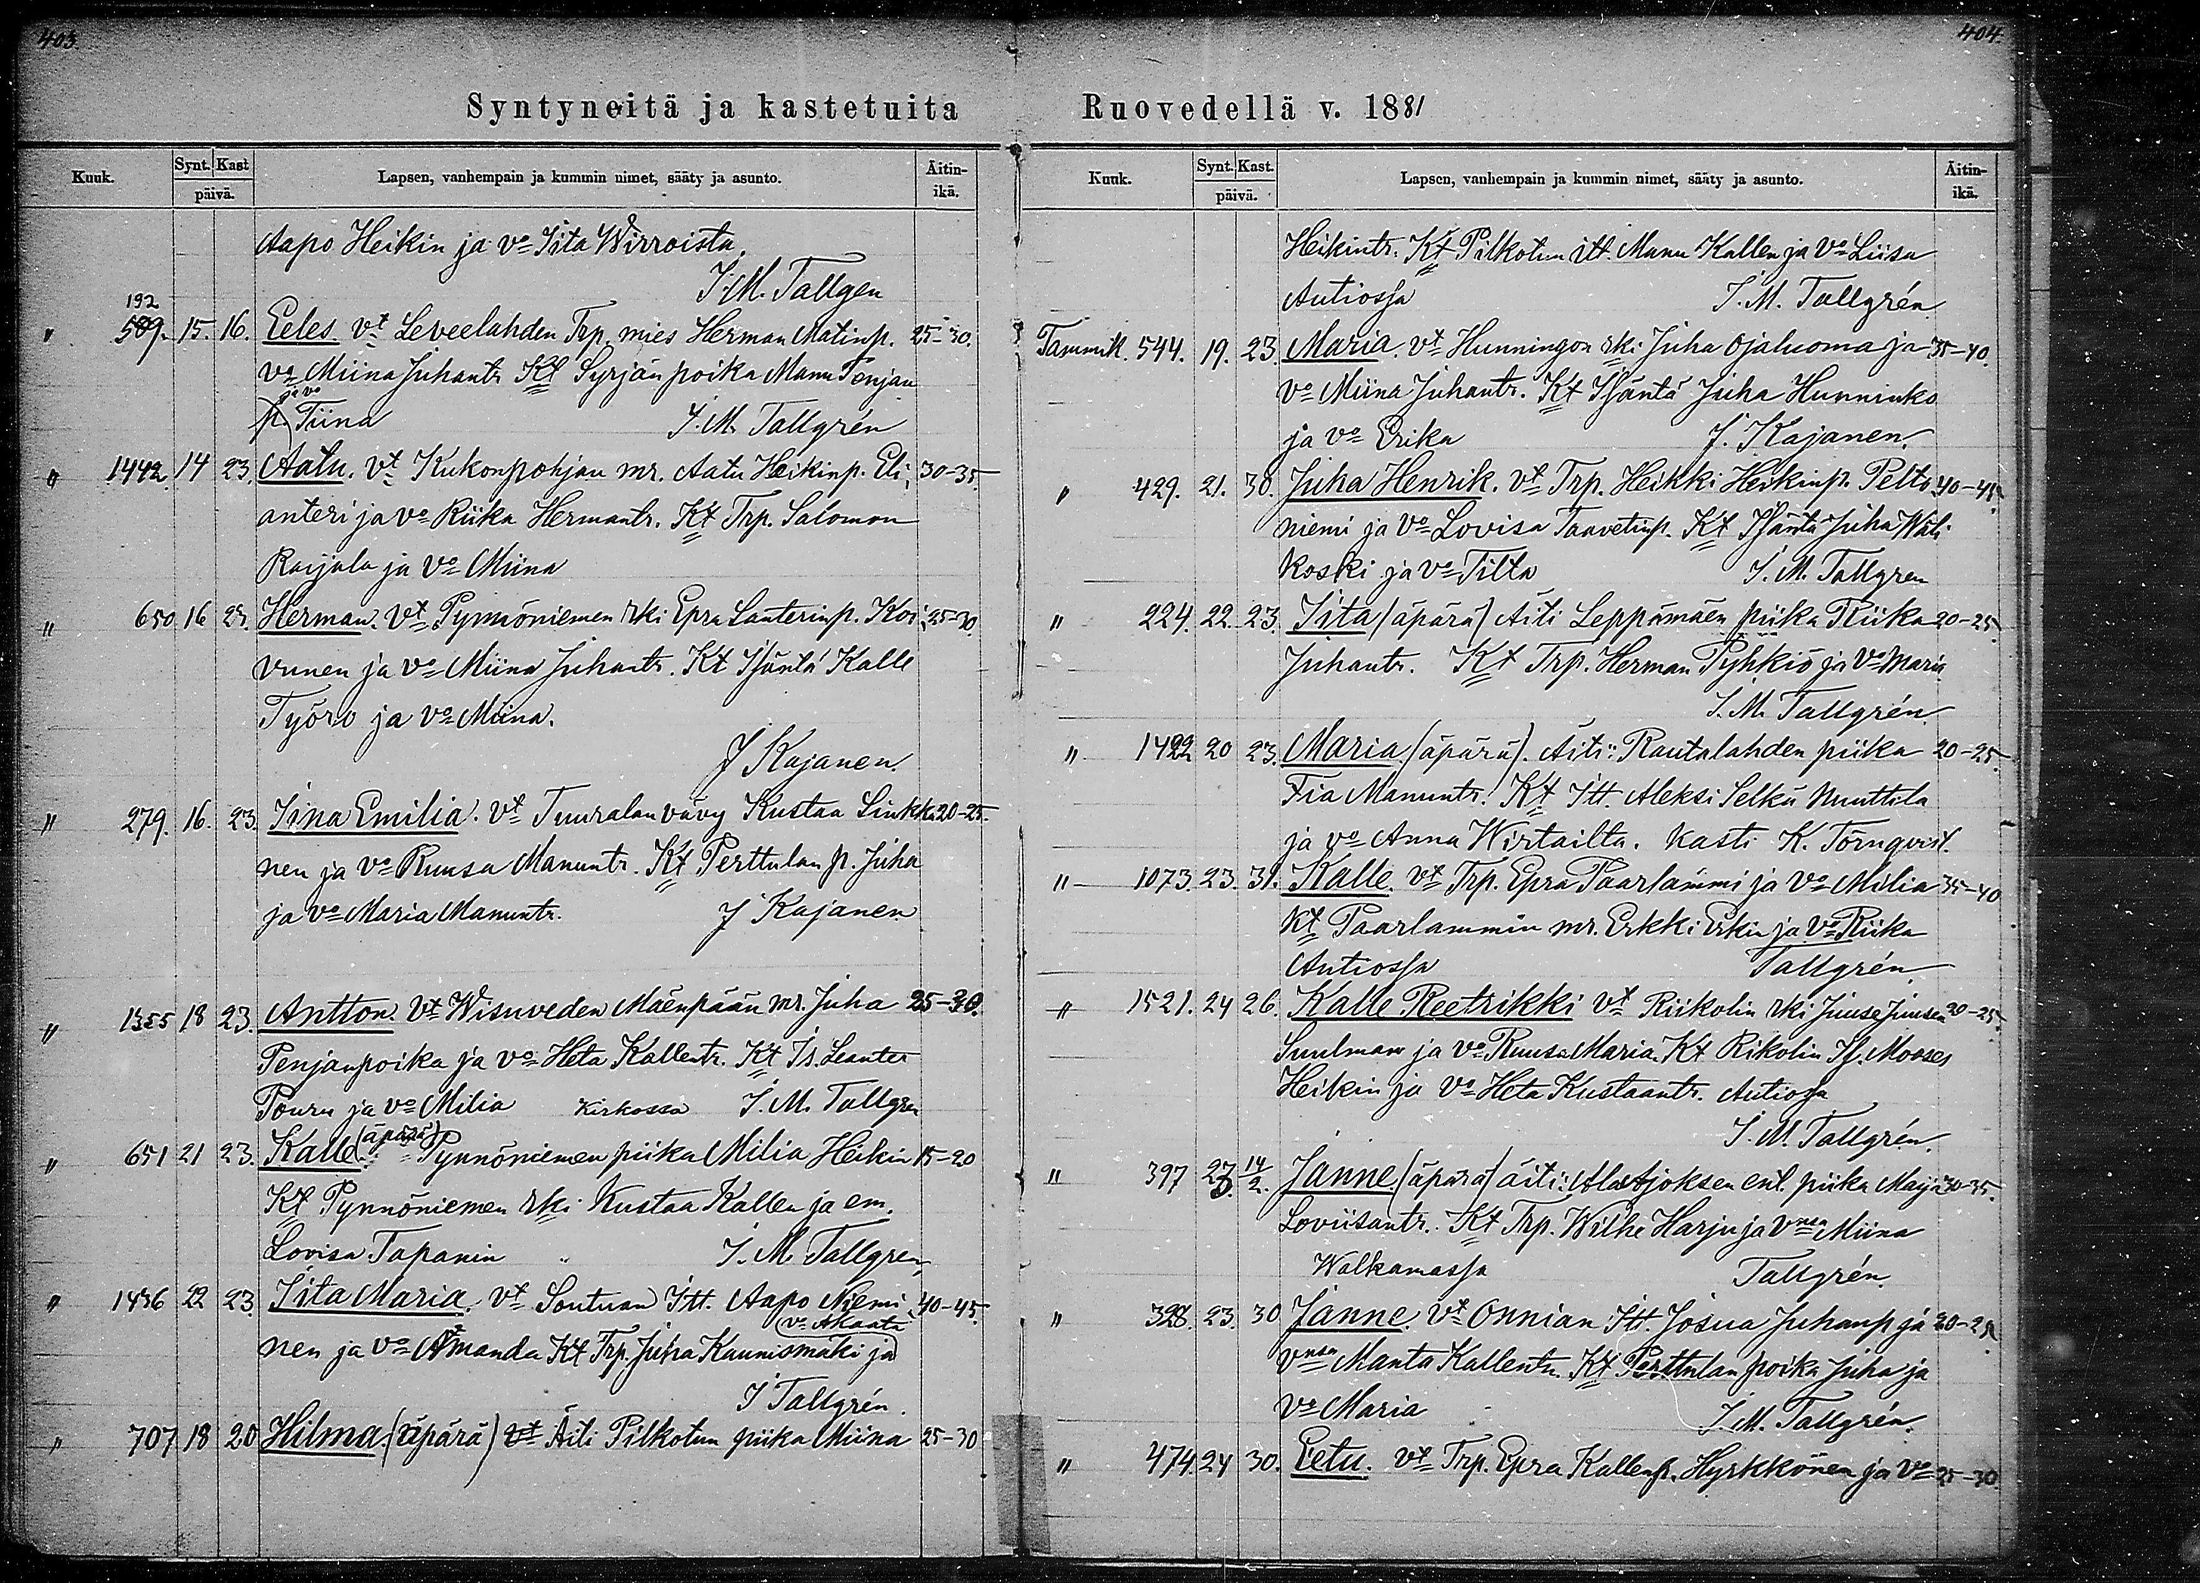 403
Syntyneitä ja kastetuita
Kuuk. Synt. Kast päivä. Lapsen, vanhempain ja kummin nimet, sääty ja asunto. Äitin-ikä.
Aapo Heikin ja vo Iita Wirroista.
I. M. Tallgen
192
" 589. 15. 16. Eeles. vt Leveelahden Trp. mies Herman Matinp. 25-30.
vo Miina Juhantr Kt Syrjän poika Manu Penjan
ja vo
p. Tiina I. M. Tallgrén
" 1442 14 23. Aatu. vt Kukonpohjan mr. Aatu Heikinp. Eli- 30-35
anteri ja vo Riika Hermantr. Kt Trp. Salomon
Raijala ja vo Miina
" 650 16 23. Herman. vt Pynnöniemen rki Epra Santerinp. Koi- 25-30.
vunen ja vo Miina Juhantr. Kt Isäntä Kalle
Työrö ja vo Miina.
J Kajanen.
" 279. 16. 23. Iina Emilia. vt Tuuralan vävy Kustaa Sinkko 20-25.
nen ja vo Ruusa Manuntr. Kt Perttulan p. Juha
ja vo Maria Manuntr. J Kajanen
" 1355 18 23. Antton vt Wisuveden Mäenpään mr. Juha 25-30.
Penjanpoika ja vo Heta Kallentr. Kt Is. Leanter
Pouru ja vo Milia Kirkossa I. M. Tallgren
" 651 21 23. Kalle (äpärä) Pynnöniemen piika Milia Heikin 15-20
Kt Pynnöniemen rki Kustaa Kallen ja em.
Lovisa Tapanin I. M. Tallgren
" 1436 22 23. Iita Maria. vt Sontuan Itt. Aapo Niemi 40-45.
vo Akaata
nen ja vo Amanda Kt Trp. Juha Kaunismäki ja
I Tallgrén.
" 707 18 20 Hilma. (äpärä) vt Äiti Pilkotun piika Miina 25-30
404
Ruovedellä v. 1881
Kuuk. Synt. Kast. päivä. Lapsen, vanhempain ja kummin nimet, sääty ja asunto. Äitin-ikä.
Heikintr. Kt Pilkotun itt. Manu Kallen ja vo Liisa
Autiossa I. M. Tallgrén
Tammik. 544. 19. 23. Maria. vt Hunningon rki Juha Ojaluoma ja 35-40.
vo Miina Juhantr. Kt Isäntä Juha Hunninko
ja vo Erika J. Kajanen.
" 429. 21. 30. Juha Henrik. vt Trp. Heikki Heikinp. Pelto 40-45.
niemi ja vo Lovisa Taavetinp. Kt Isäntä Juha Wäli-
koski ja vo Tilta I. M. Tallgren
" 224. 22. 23. Iita (äpärä) Äiti Leppämäen piika Riika 20-25.
Juhantr. Kt Trp. Herman Pyhkiö ja vo Maria
I. M. Tallgrén
" 1422 20 23. Maria (äpärä). Äiti: Rautalahden piika 20-25.
Fia Manuntr. Kt Itt. Aleksi Selkä Nuuttila
ja vo Anna Wirtailta. Kasti K. Törnqvist.
" 1073. 23. 31. Kalle. vt Trp. Epra Paarlammi ja vo Milia 35-40
Kt Paarlammin mr. Erkki Erkin ja vo Riika
Autiossa Tallgrén
" 1521. 24 26. Kalle Reetrikki vt Riikolin rki Juuse Juusen 20-25.
Suulman ja vo Ruusa Maria. Kt Rikolin Is. Mooses
Heikin ja vo Heta Kustaantr. Autiossa
I. M. Tallgrén.
" 397 23. 14/2. Janne (äpärä) äiti: Ala Ajoksen ent. piika Maija 30-35.
Loviisantr. Kt Trp. Wilhe Harju ja vnsa Miina
Walkamassa Tallgrén.
" 398. 23. 30 Janne. vt Onnian Itt. Josua Juhanp ja 20-25
vnsa Manta Kallentr. Kt Perttulan poika Juha ja
vo Maria I. M. Tallgrén.
" 474. 24 30. Eetu. vt Trp. Epra Kallenp. Hyrkkönen ja vo 25-30